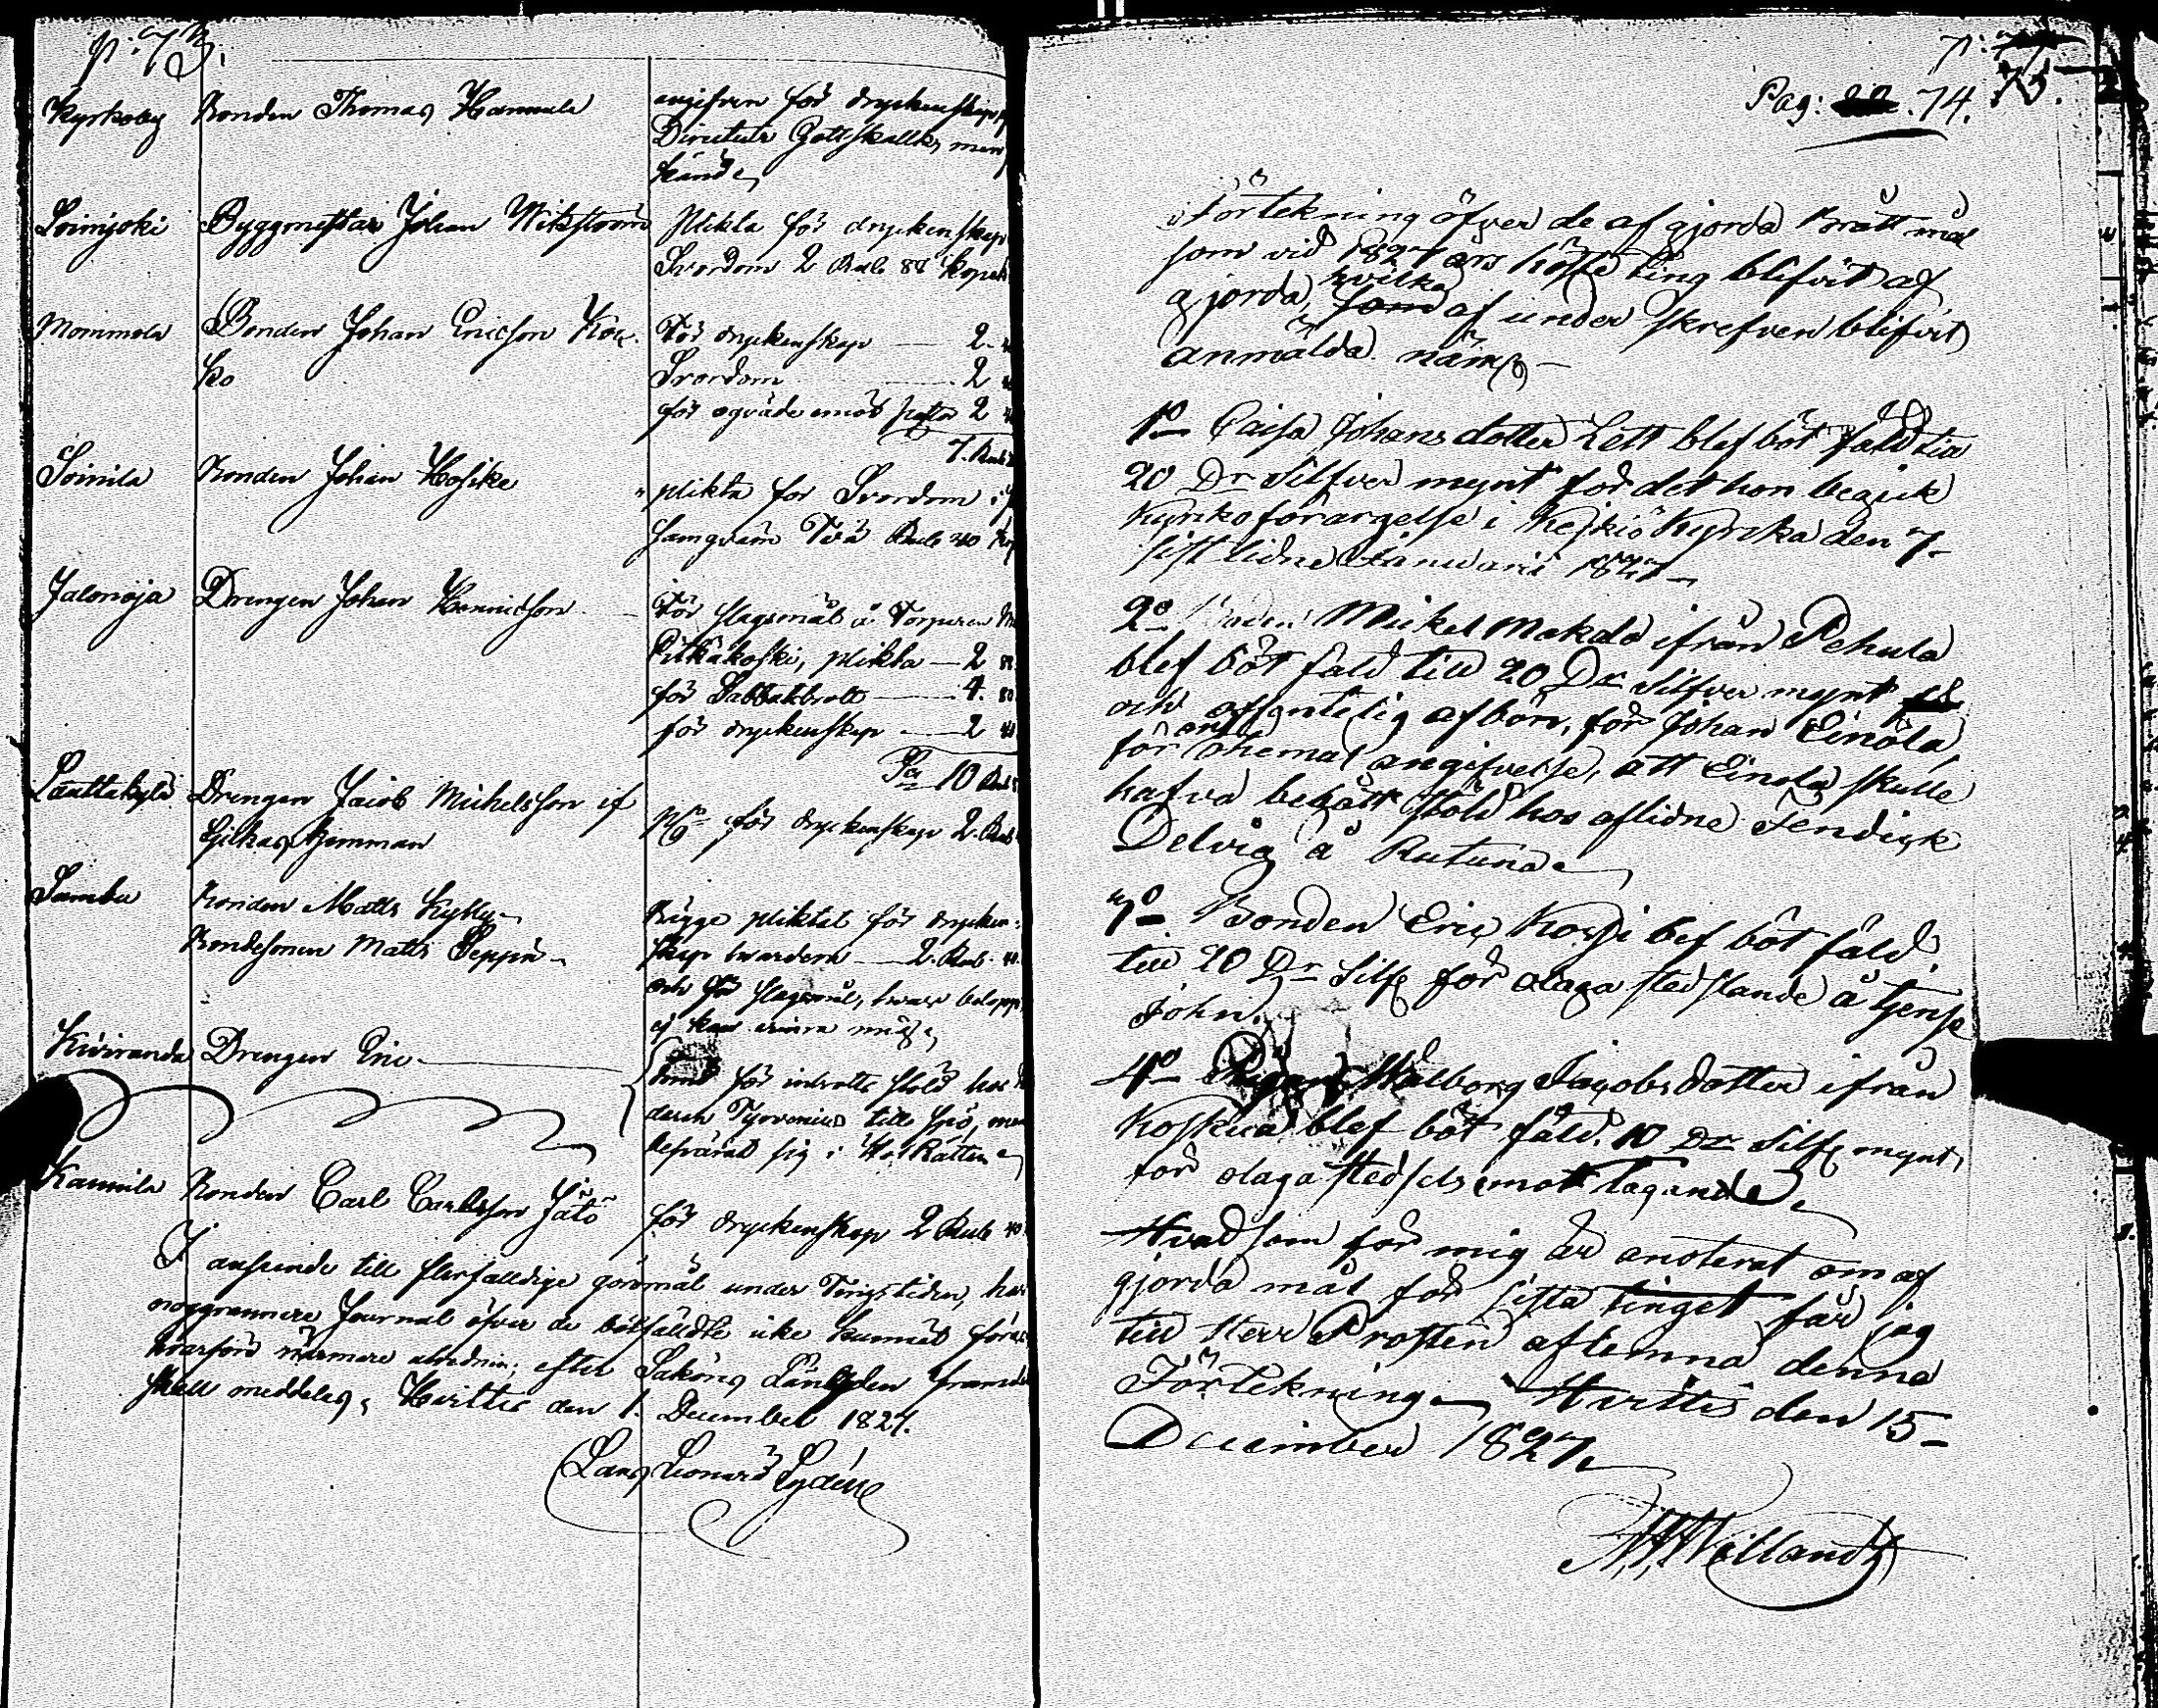 p: 73.
Kyrkoby Bonden Thomas Hannula angifven för dryckenskap
Directeur Gottskalk, men
händ
Loimijoki Byggmästar Johan Wikström Plikta för dryckenskap
Svordom 2 Rub. 88 Kopek
Mommola Bonden Johan Ericsson Kou- För dryckenskap — 2.
ko Svordom — 2
för oqväde emot 2
7. Rub
Soinila Bonden Johan Hosike plikta för Svordom i
Samqväm Två Rub 40 Kop
Jalonoja Drengen Johan Henricsson För slagsmål å Torparen
Pitkäkoski, plikta — 2
för Sabbatsbrott — 4. 80
för dryckenskap — 2
Sa 10 Rub
Lauttakylä Drengen Jacob Michelsson if för dryckenskap 2. Rub
Hemman
Sambu Bonden Matts Kylly Bägge pliktat för drycken-
Bondesonen Matts Seppä skap hvardera — 2. Rub. 40.
och för slagsmål, hvars belopp
ej kan erinra mig,
Kiviranda Drengen Eric för inbrotts stöld hos
till spö, men
besvärat sig i Hof Rätten
Kaunila Bonden Carl Carlsson Jätö för dryckenskap 2 Rub 40
I anseende till flerfalldige göromål under Tingstiden, har
noggrannare Journal öfver de bötfälldte icke kunnat föras
hvarföre närmare utredning efter Saköres Längden framdel
skall meddelas, Hvittis den 1. December 1827.
Lars Leonard Lydén
p: 75.
Pag: 74.
Förtekning öfver de af gjorda Brått mål
som vid 1827 års höste ting blifvit af
gjorda, hvilka af under skrefven blifvit
anmälda näml —
1o Caisa Johans dotter Lett blef böt fäld till
20 Dr Silfver mynt för det hon begick
Kyrko förargelse i Keikiö Kyrcka den 7
sist lidne Januarii 1827
2o Mickel Mokola ifrån Pehula
blef böt fäld till 20 Dr Silfver mynt
och offentelig afbön, för Johan Einola
för angifvelse, att Einola skulle
hafva begått stöld hos aflidne Fendrick
Delvig å Rutuna
3o Bonden Eric Korpi bef böt fäld
till 20 Dr Silf för olaga sted slande å tjenst
John.
4o Pigan Walborg Jacobs dotter ifrån
Koskua blef böt fäld 10 Dr Silf mynt
för olaga stedsels emot tagande
Hvad som för mig är anoterat om af
gjorda mål för sista tinget får jag
till Herr Prosten aflemna denna
Förtekning Hvittis den 15
December 1827